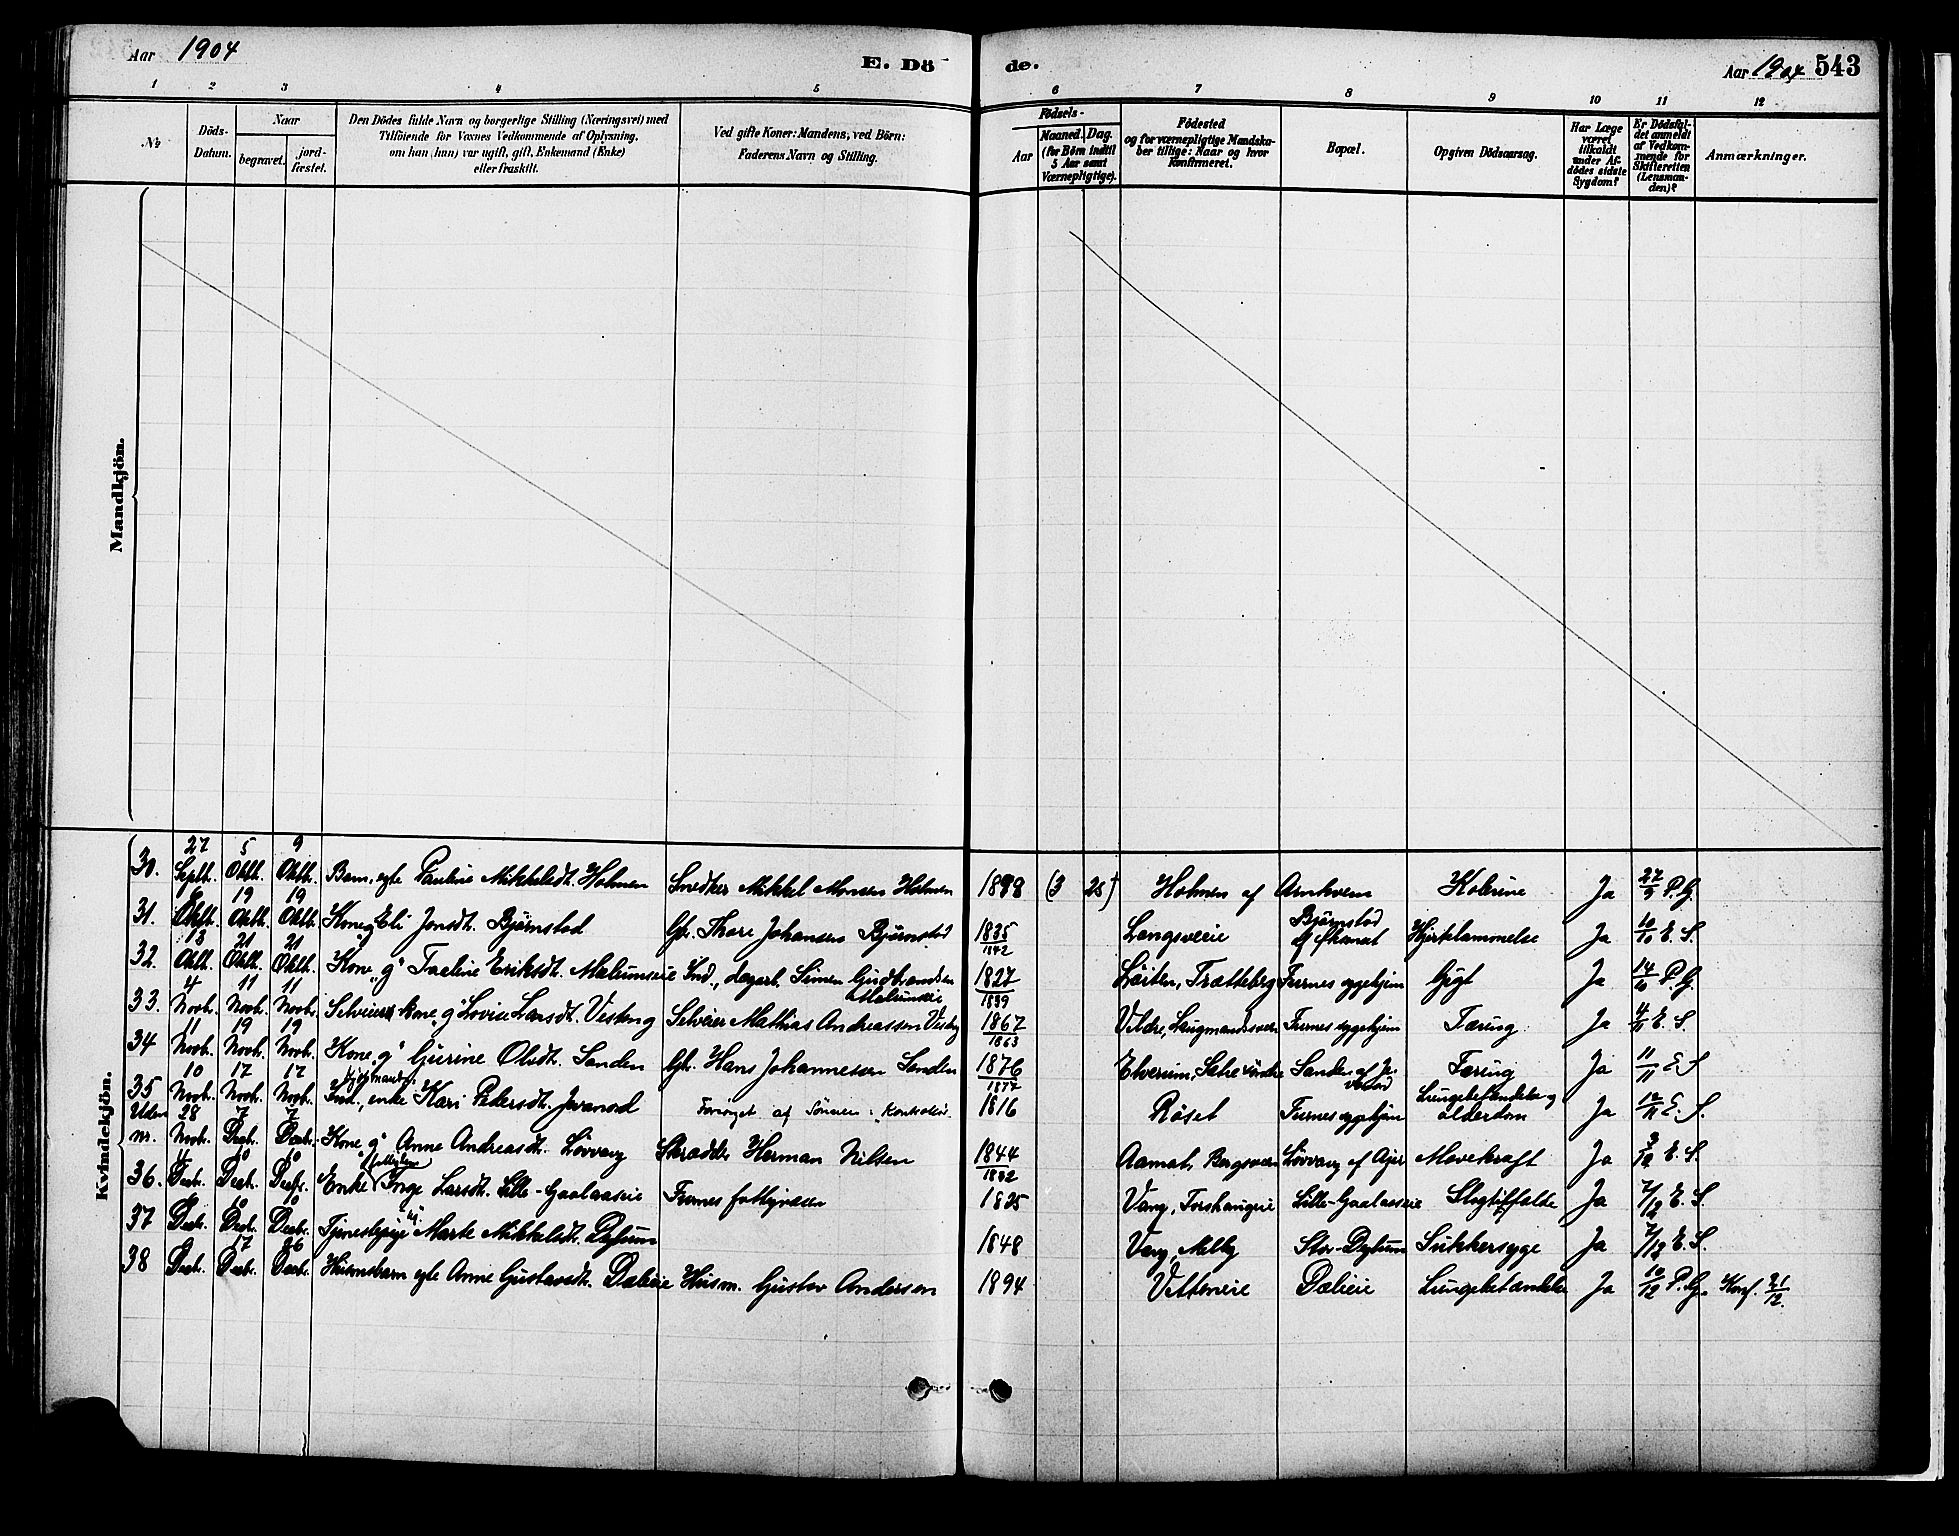 Aar 1904
E. Dö
de.
Aar 1904 543
1 2 3 4 5 6 7 8 9 10 11 12
No
Döds-
Datum.
Naar
begravet.
jord-
fæstet.
Den Dödes fulde Navn og borgerlige Stilling (Næringsvei) med
Tilföiende for Voxnes Vedkommende af Oplysning.
om han (hun) var ugift, gift, Enkemand (Enke)
eller fraskilt.
Ved gifte Koner: Mandens, ved Börn:
Faderens Navn og Stilling.
Födsels-
Aar
Maaned. Dag.
(for Börn indtil
5 Aar samt
Værnepligtige).
Födested
og for værnepligtige Mandska-
ber tillige: Naar og hvor
Konfirmeret.
Bopæl.
Opgiven Dödsaarsag.
Har Læge
været
tilkaldt
under Af-
dödes sidste
Sygdom?
Er Dödsfal-
det anmeldt
af Vedkom-
mende for
Skifteretten
(Lensman-
den)?
Anmærkninger.
Mandkjön.
Kvindekjön.
30. 27 Septb. 5 Oktb. 9 Oktb. Barn, egte Pauline Mikkelsdt. Holmen Snedker Mikkel Monsen Holmen Holmen af Arnkvern Kolerine Ja 27/9 P. G.
31. Oktb. 19 Oktb. 19 Oktb. Kone g Eli Jonsdt. Bjørnstad Thore Johansen Bjørnstad 1835/1842 Langsveeie Bjørnstad af Hjerklammelse Ja 10/10 E. S.
32. 13 Oktb. 21 Oktb. 21 Oktb. Kone "g" Eriksdt. Mælumseie Ind., dagarb. Simen Gudbrandsen Mælumseie 1827/1839 Løiten, Trætteberg Furnes sygehjem Gigt Ja 14/10 P. G.
33. 4 Novb. 11 Novb. 11 Novb. Selveiers Kone "g" Lovise Larsdt. Visteng Selveier Mathias Andreassen 1867/1863 Vildre, Furnes sygehjem Tæring Ja E. S.
34 11 Novb. 19 Novb. 19 Novb. Kone "g" Gurine Olsdt. Sanden Hans Johannessen Sanden 1876/1877 Elverum, Sanden af Tæring Ja 11/11 E. S.
35 10 Novb. 17 Novb. 17 Novb. Ind., enke Kari Pedersdt. Forsørget af Sønnen, Kontorist. 1816 Røset Furnes sygehjem Lungebetændelse og alderdom Ja 12/11 E. S.
Uden nr. 28 Novb. 7 Decbr. 7 Decbr. Kone "g" Anne Andreasdt. Løvvang Skrædder Herman Nilsen 1844 Aamot, Løvvang af Ajer Mavekræft Ja 3/12 E. S.
36. 4 Decb. 10 Decb. 10 Decb. Enke (fattiglem) Inge Larsdt. Lille-Gaalaaseie Furnes fattigvæsen 1825 Vang, Lille-Gaalaaseie Slagtilfælde Ja 7/12 E. S.
37 Decb. Decb. Decb. Tjenestepige Marte Mikkelsdt. Dystum 1848 Vang, Melby Stor-Dystum Sukkersyge Ja 7/12 E. S.
38 Decb. 17 Decb. 26 Decb. Husmsbarn egte Anne Gustavsdt. Dælieie Husm. Gustav Andersen 1894 Vetteneie Dælieie Lungebetændelse Ja 10/12 P. G. Konf. 21/12.